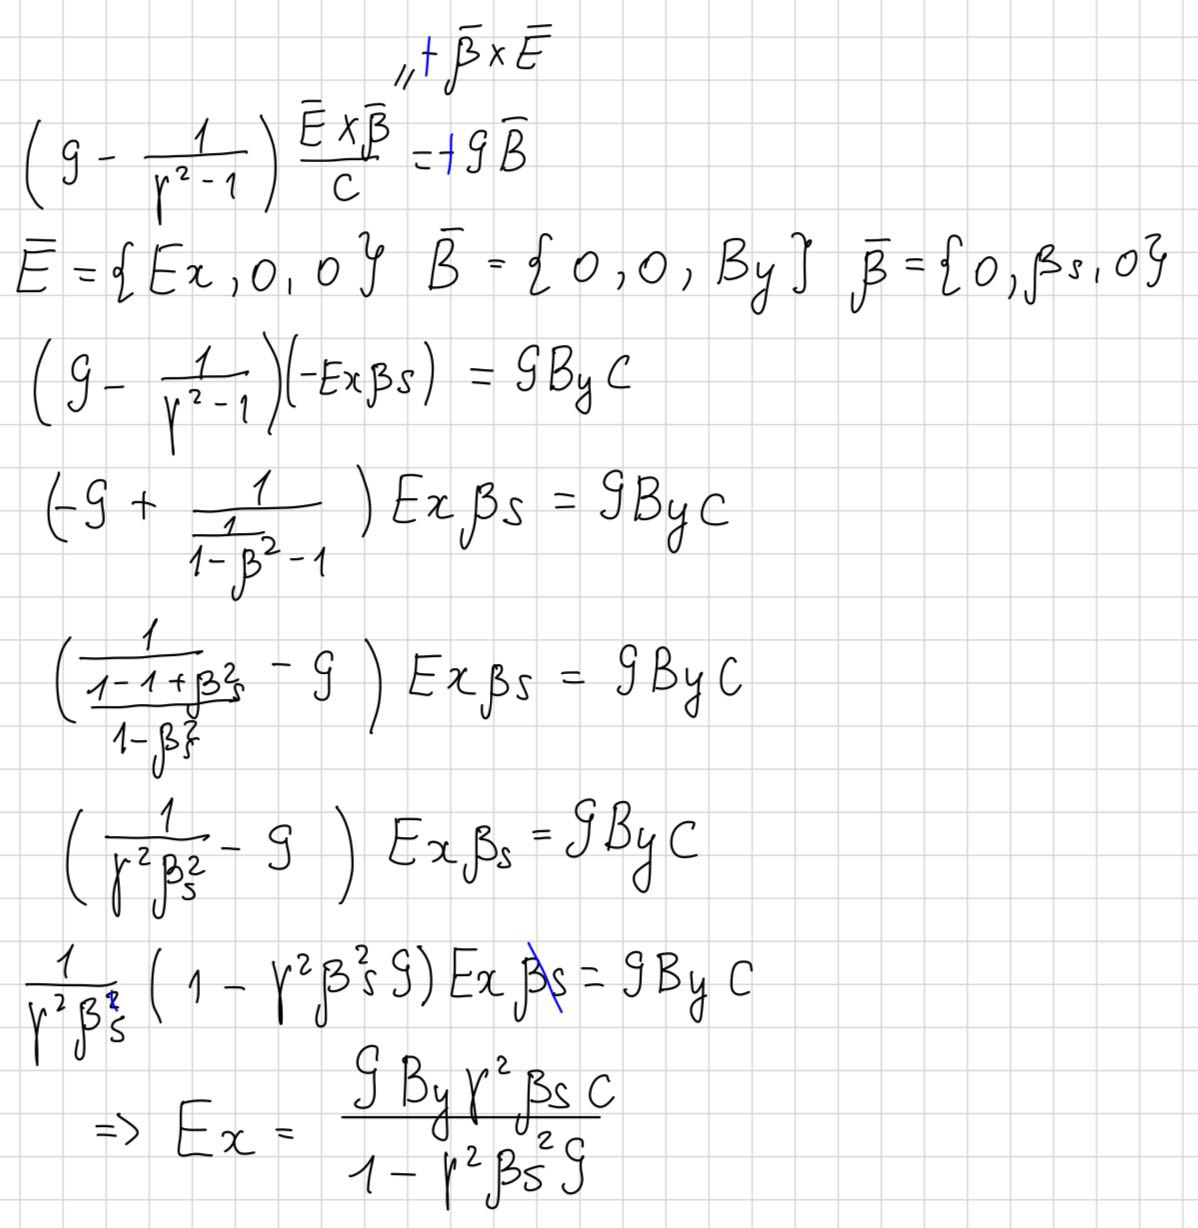 „+ β̄ × Ē
(g - 1/(γ² - 1)) (Ē × β̄)/c = +g B̄
Ē = {Ex, 0, 0} B̄ = {0, 0, By} β̄ = {0, βs, 0}
(g - 1/(γ² - 1))(-Ex βs) = g By c
(-g + 1/(1/(1-β²) - 1)) Ex βs = g By c
(1/((1 - 1 + βs²)/(1 - βs²)) - g) Ex βs = g By c
(1/(γ² βs²) - g) Ex βs = g By c
1/(γ² βs²) (1 - γ² βs² g) Ex βs = g By c
=> Ex = (g By γ² βs c)/(1 - γ² βs² g)